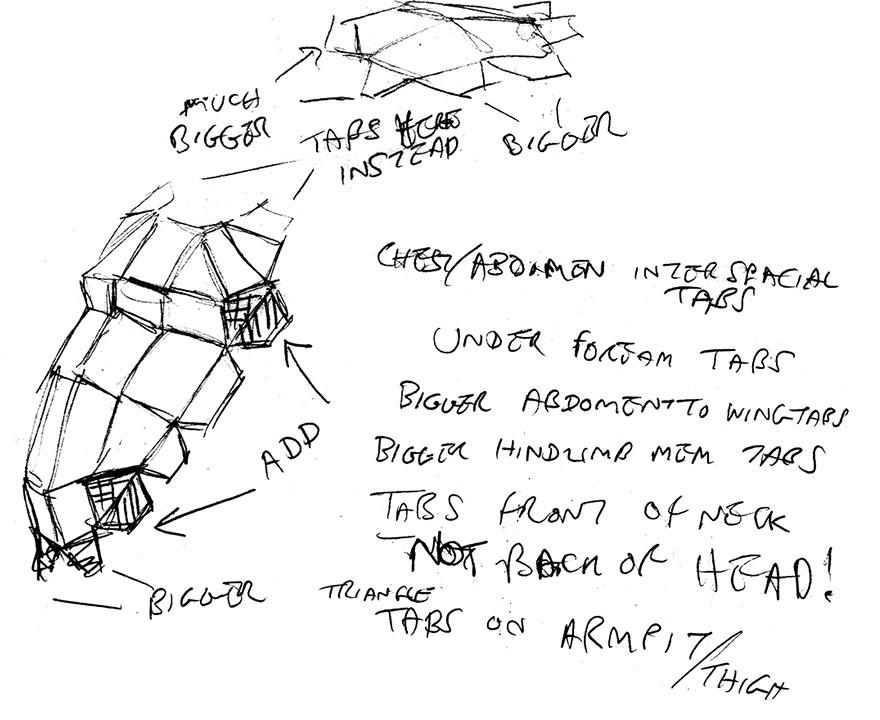 MUCH
BIGGER
TABS HERE
INSTEAD
BIGGER
CHEST/ABDOMEN INTERSPACIAL
TABS
UNDER FOREARM TABS
BIGGER ABDOMEN TO WINGTABS
BIGGER HINDLIMB MEM TABS
ADD
TABS FRONT OF NECK
NOT BACK OF HEAD!
BIGGER
TRIANGLE
TABS ON ARMPIT/
THIGH